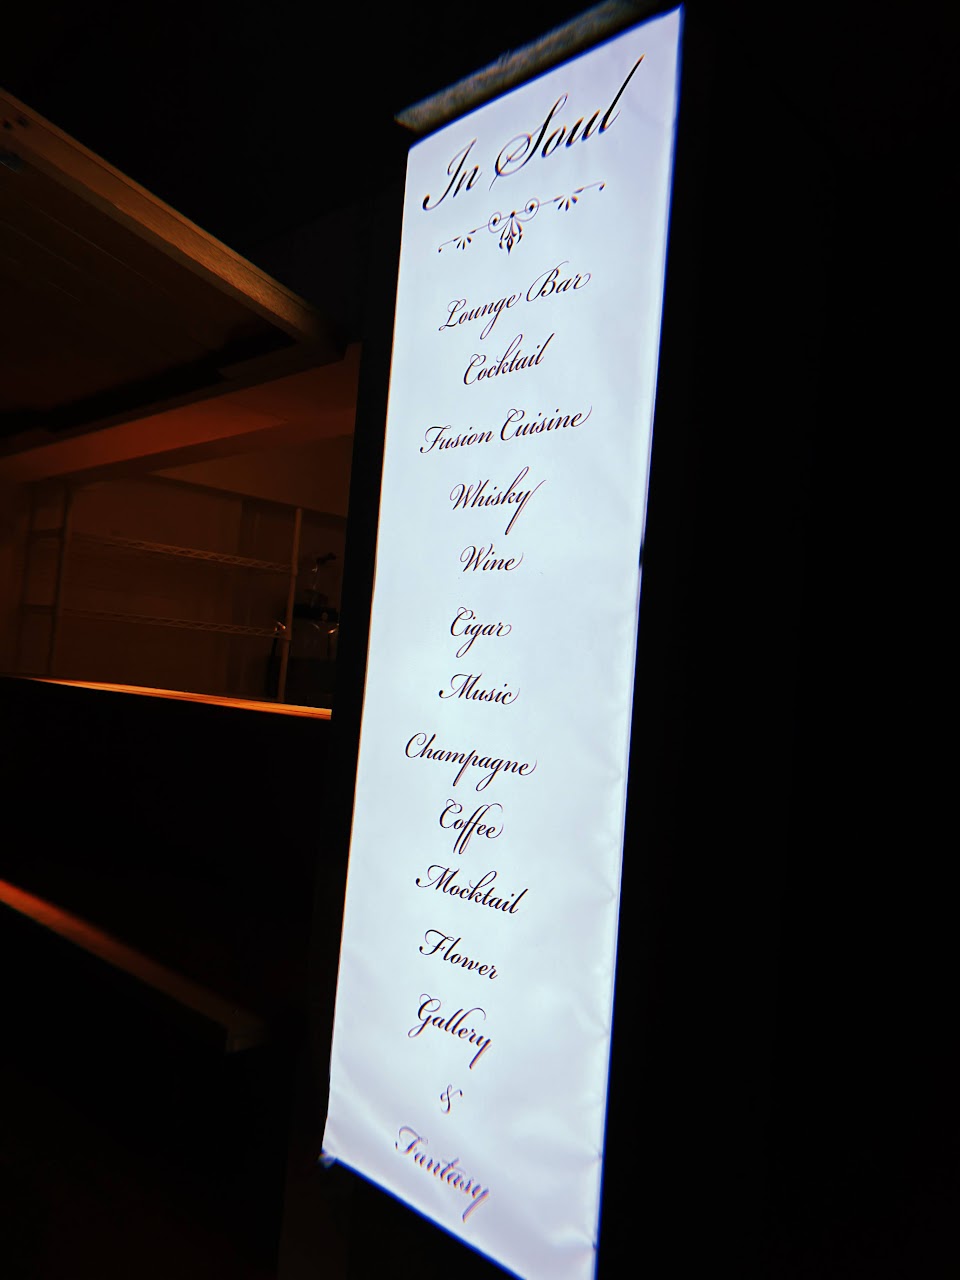 In Soul
Lounge Bar
Cocktail
Fusion Cuisine
Whisky
Wine
Cigar
Music
Champagne
Coffee
Mocktail
Flower
Gallery
&
Fantasy